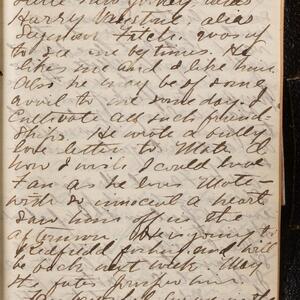 Harry Valentine, alias
Seymour Fitch. going
to see me by times. He
likes me and I like him
Also he may be of some
avail to me some day. I
Cultivate all such friend-
ships. He wrote a bully
love letter to Mate
how I wish I could love
Fan as he loves Mate-
with so innocent a heart
Saw him off in the
afternoon. He is going to
fishing and will
be back next week. May
the fates prosper him.